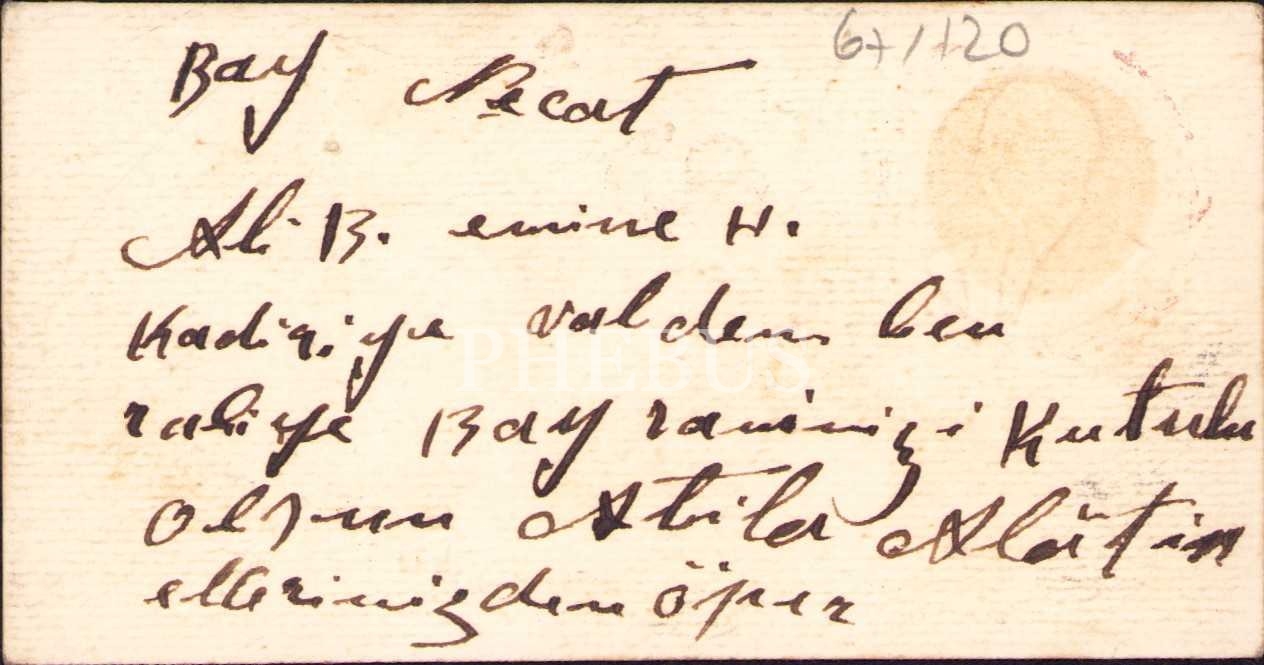 67/120
Bay Necat
Ali B. emine H.
Kadiriye valdem ben
raliye Bayraminizi Kutulu
olsun Atila Alâtin
ellerinizden öper
PHEBUS